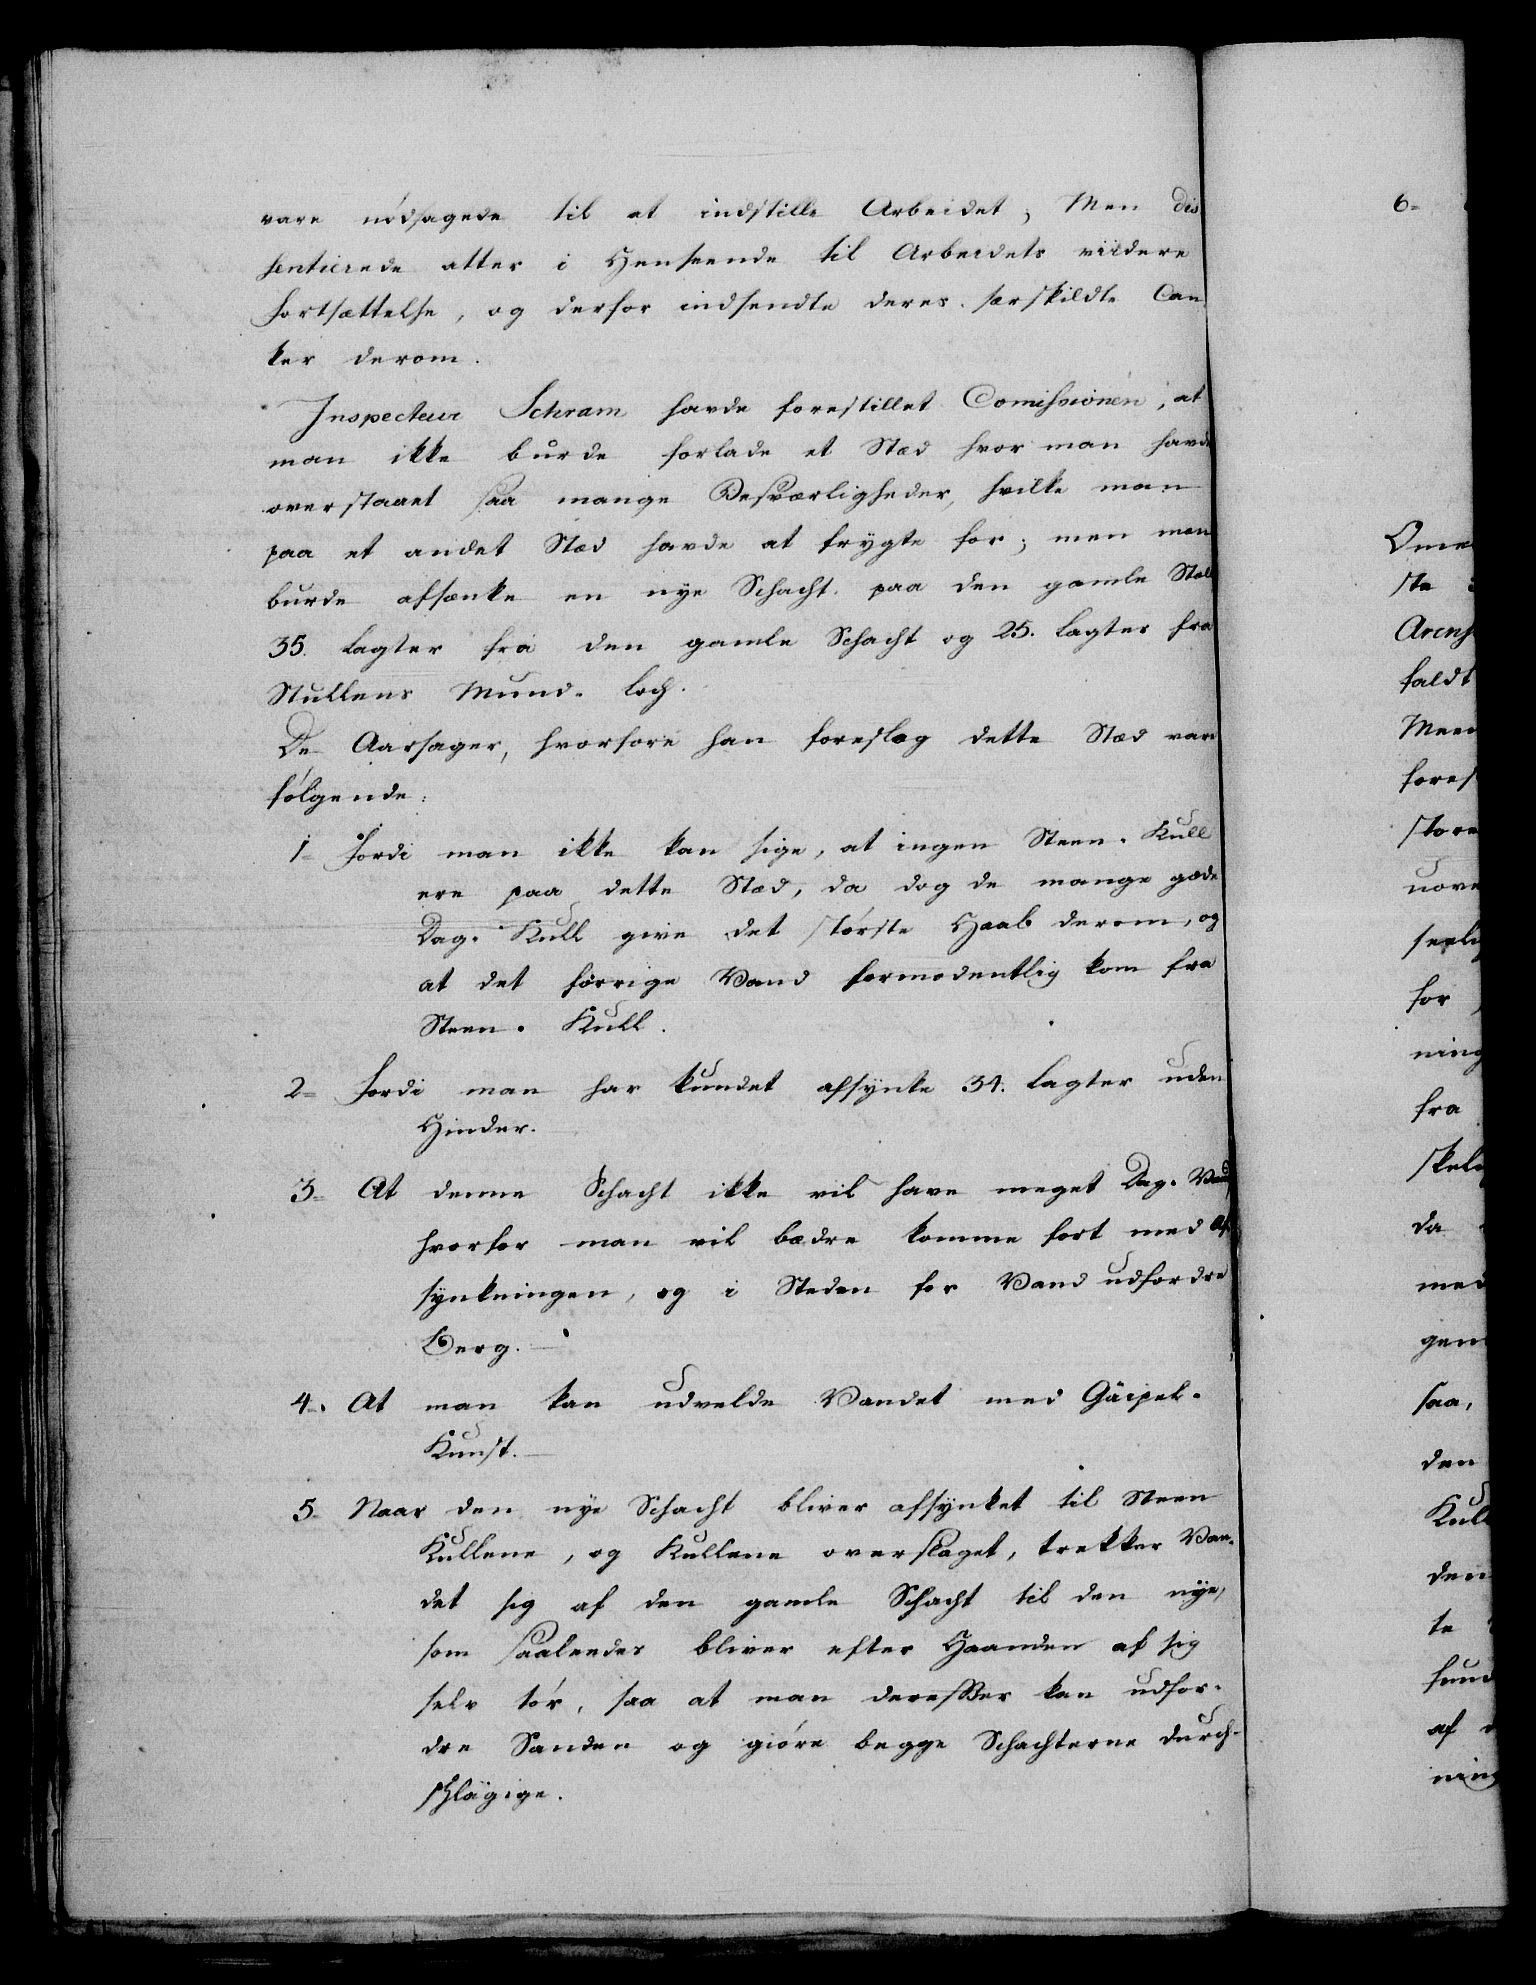 vare nødsagede til at indstille Arbeidet; Men dis
sentierede atter i Henseende til Arbeidets viidere
fortsættelse, og derfor indsendte deres særskildte Tan
ker derom.
Inspecteur Schram havde forestillet Comissionen, at
man ikke burde forlade et Stæd hvor man havde
overstaaet saa mange Besværligheder, hvilke man
paa et andet Stæd havde at frygte for; men man
burde afsænke en nye Schacht paa den gamle Stoll
35. Lagter fra den gamle Schacht og 25. Lagter fra
Stullens Mund-Loch.
De Aarsager, hvorfore han foreslog dette Stæd vare
følgende:
1- fordi man ikke kan sige, at ingen Steen-Kull
ere paa dette Stæd, da dog de mange gode
Dag-Kull give det største Haab derom, og
at det forrige Vand formodentlig kom fra
Steen-Kull.
2- fordi man har kundet afsynke 34. Lagter uden
Hinder.
3- At denne Schacht ikke vil have meget Dag-Vand
hvorfor man vil bædre komme fort med Af
synkningen, og i Steden for Vand udfordre
Berg.
4. At man kan udvelde Vandet med Gäipel-
Kunst.
5- Naar den nye Schacht bliver afsynket til Steen
Kullene, og Kullene overslaget, trekker Van-
det sig af den gamle Schacht til den nye,
som saaleedes bliver efter Haanden af sig
selv tør, saa at man derefter kan udfor-
dre Sanden og giøre begge Schachterne durch-
schlägige.
6-
ste
faldt
store
for
ning
fra
da
med
saa,
den
Kull
den
te
af
ning